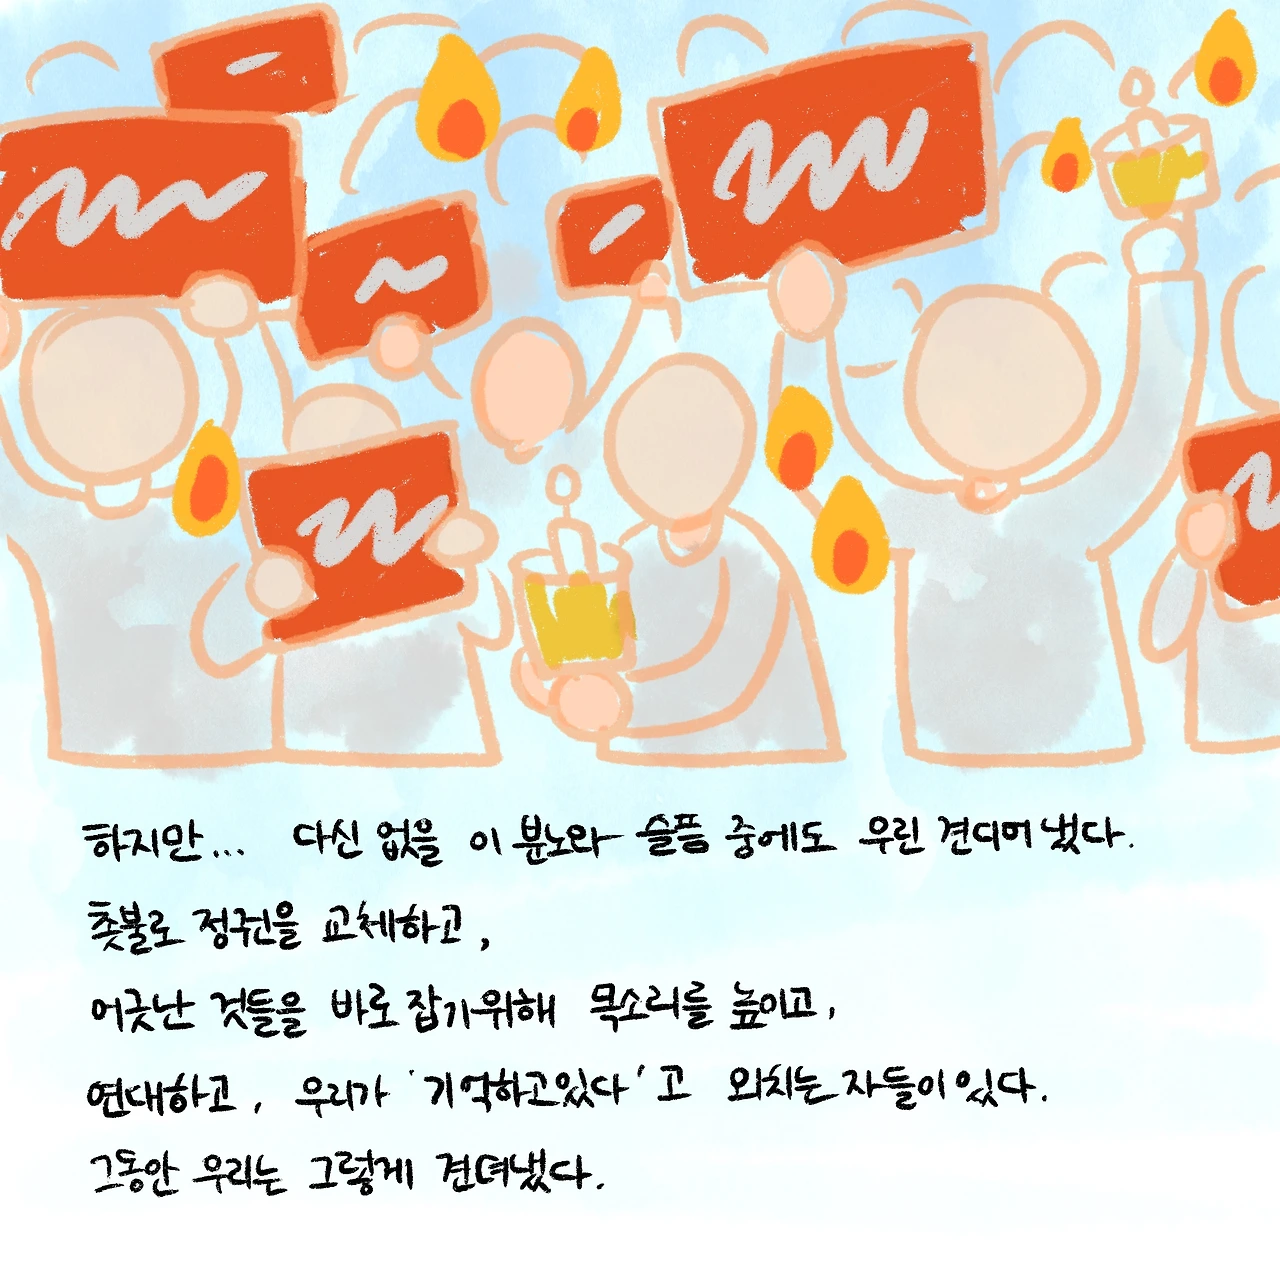 하지만... 다신 없을 이 분노와 슬픔 중에도 우린 견디어 냈다.
촛불로 정권을 교체하고,
어긋난 것들을 바로 잡기위해 목소리를 높이고,
연대하고, 우리가 '기억하고있다'고 외치는 자들이 있다.
그동안 우리는 그렇게 견뎌냈다.